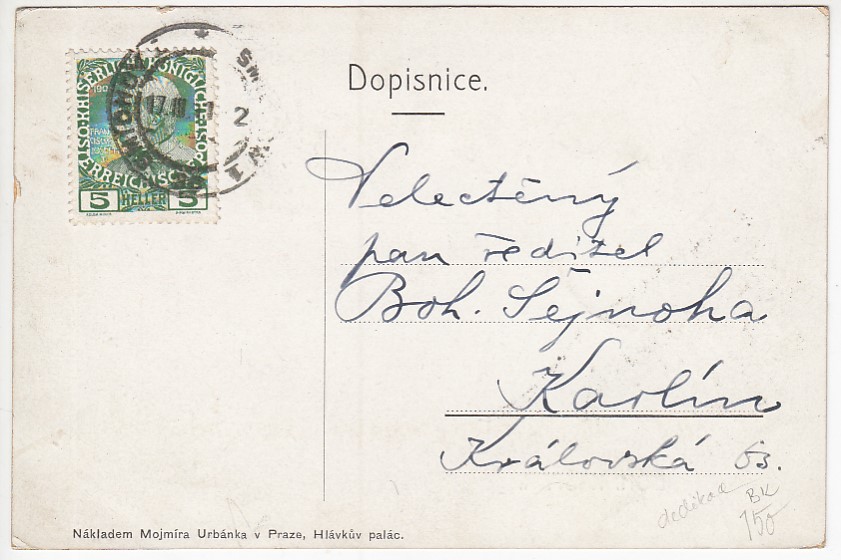 Dopisnice.
KAISERLICHE KÖNIGLICHE
ÖSTERREICHISCHE
5 HELLER 5
17 III
2
Velectěný
pan ředitel
Boh. Šejnoha
Karlín
Královská
dedikace
BK
150
Nákladem Mojmíra Urbánka v Praze, Hlávkův palác.